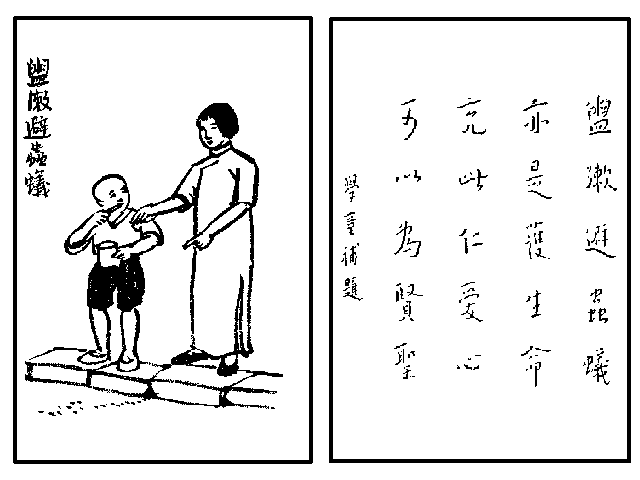 盥漱避蟲蟻
盥漱避蟲蟻
亦是護生命
充此仁愛心
可以為賢聖
學童補題